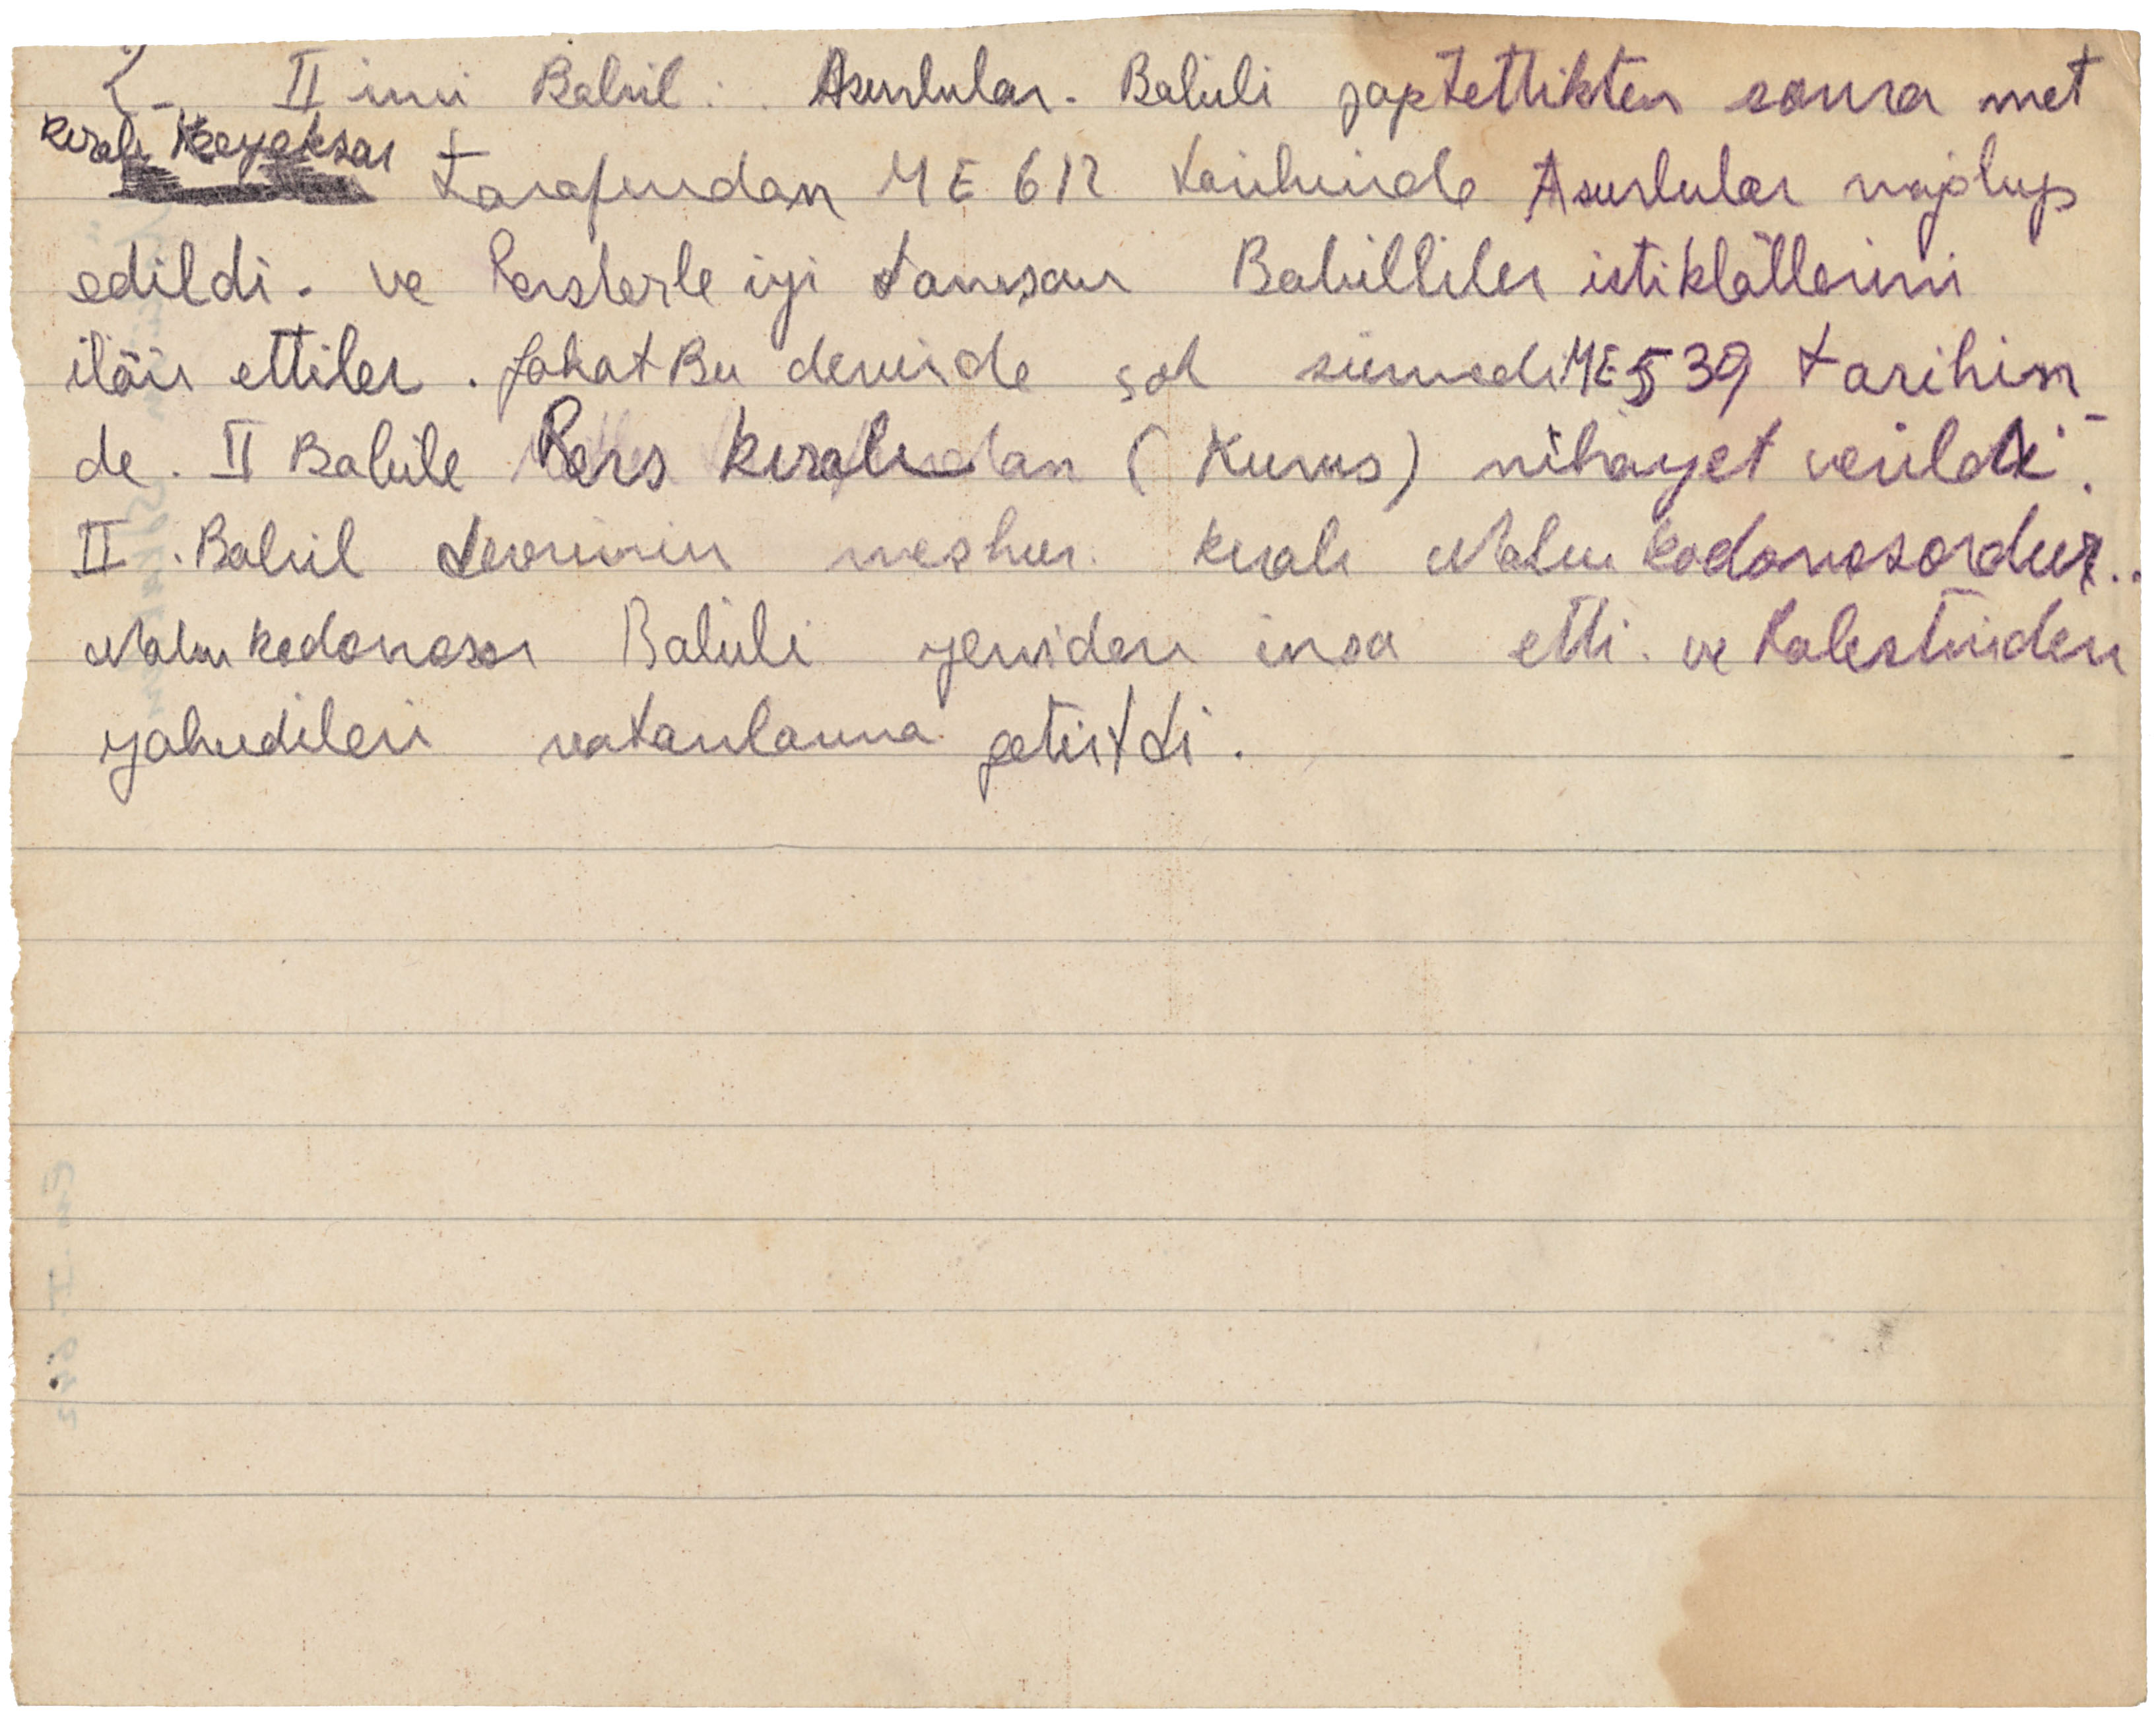 2- II inci Babil: Asurlular. Babili zaptettikten sonra met
kıralı Keyaksar tarafından ME 612 tarihinde Asurlular mağlup
edildi. ve Perslerle iyi tanışan Babilliler istiklâllerini
ilân ettiler. fakat Bu devirde çok sürmedi ME 539 tarihin-
de. II Babile Pers kıralından (Kurus) nihayet verildi.
II. Babil devrinin meshur kıralı Nabukodonosordur..
Nabukodonosor Babili yeniden insa etti. ve Falestinden
yahudileri vatanlarına getirtdi.